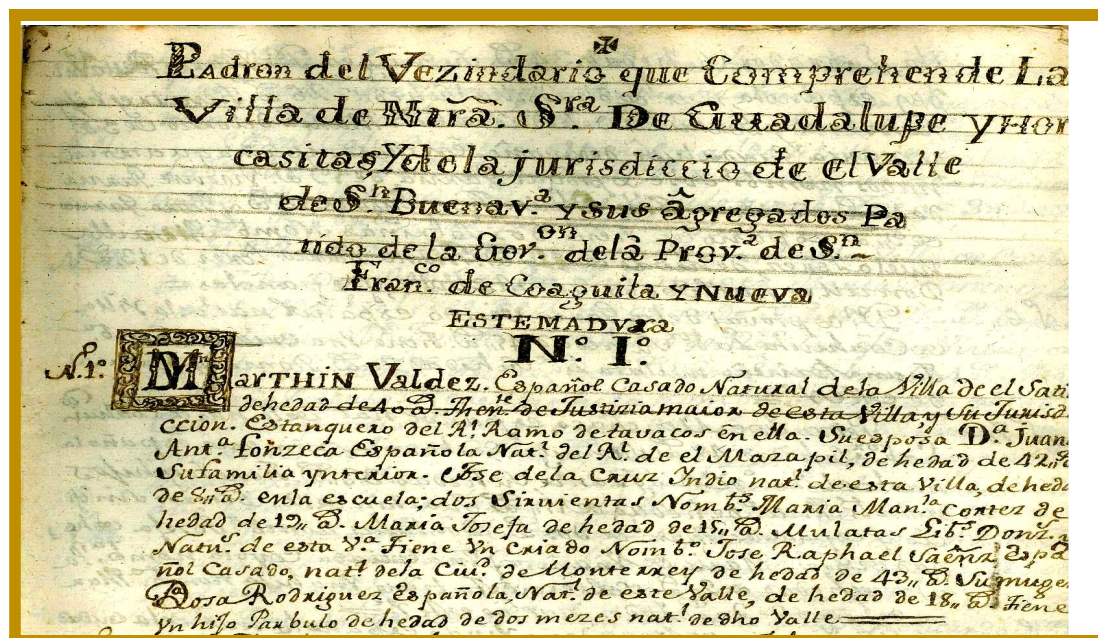 Padron del Vezindario que Comprehende La
Villa de Ntrã. S.ra De Guadalupe y Hor
casitas, Y de la jurisdiccio de el Valle
de S.n Buenav.a y sus ãgregados Pa
nido de la Gov.on dela Prov.a de S.n ~
Fran.co de Coaguila y Nueva
Estemadura
N.o 1.o
N.o 1.o Mn arthin Valdez. Español Casado Natural dela Villa de el Salti
de hedad de 40 a.s Then.te de Justizia maior de esta Villa, y su Jurisd
ccion. Estanquero del R.l Ramo de tavacos en ella. Su esposa D.a Juan
Ant.a Fonzeca Española Nat.l del R.l de el Mazapil, de hedad de 42,,
Su familia ynterior. Jose de la Cruz Yndio nat.l de esta Villa, de heda
de 8,, a.s en la escuela; dos Sirvientas Nomb.s Maria Man.la Cortez de
hedad de 19,, a.s Maria Josefa de hedad de 15,, a.s Mulatas Lib.s Donz.
Natu.s de esta V.a Tiene Yn Criado Nomb.o Jose Raphael Saenz Espa
ñol Casado, nat.l dela Ciu.d de Monterrey de hedad de 43,, a.s Su muge
Rosa Rodriguez Española, Nat.l de este Valle, de hedad de 18,, a.s Tiene
Yn hijo Parbulo de hedad de dos mezes nat.l de dho Valle